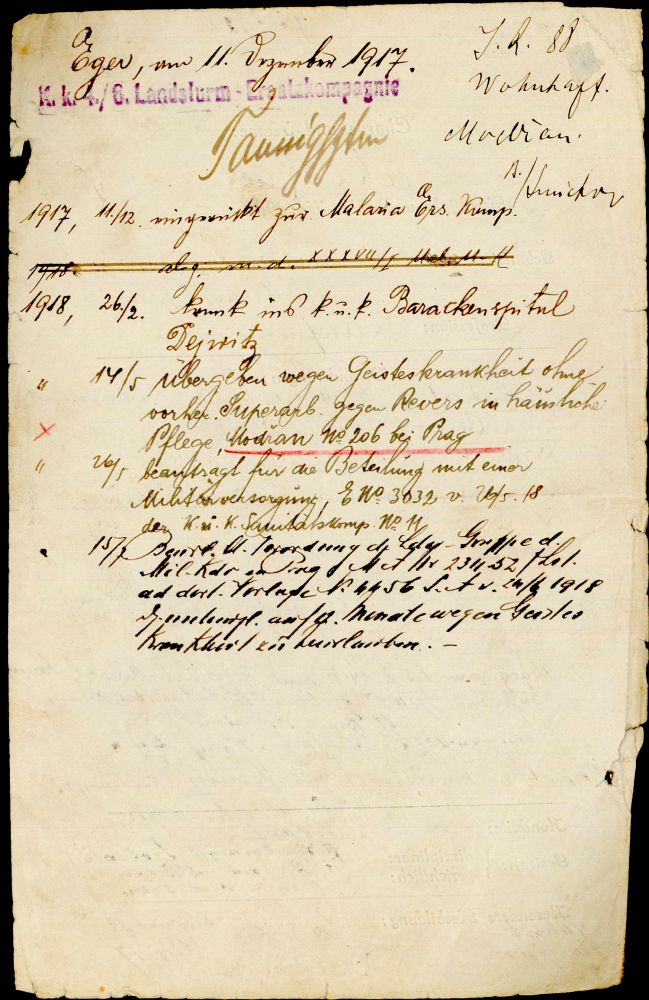 J. R. 88
Wohnhaft.
Modřan.
B. / Smichov
Eger, am 11. Dezember 1917.
K. k. 4./6. Landsturm-Ersatzkompagnie
1917, 11./12. eingerückt zur Malaria Ers. Komp.
1918 abg. m. d. XXXVII/
1918, 26./2. krank ins k. u. k. Barackenspital
Dejwitz
" 14/5 übergeben wegen Geisteskrankheit ohne
vorher. Superarb. gegen Revers in häusliche
Pflege, Modřan No 206 bei Prag
" 26/5 beantragt für die Beteilung mit einer
Militärversorgung, E No 3032 v. 26/5. 18
der K. u. K. Sanitätskomp. No 11
15/7 Beurl. lt. Verordnung d. Ldst. Gruppe d.
Mil. Kdo in Prag M. A. Nr 231152 / Lst.
ad dort. Vorlage No 4456 v. 24/6 1918
auf Monate wegen Geistes
Krankheit zu beurlauben. —